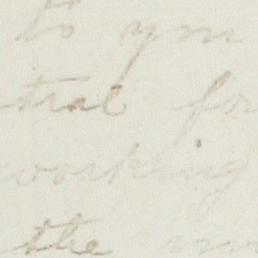 to you
trial for
working
the